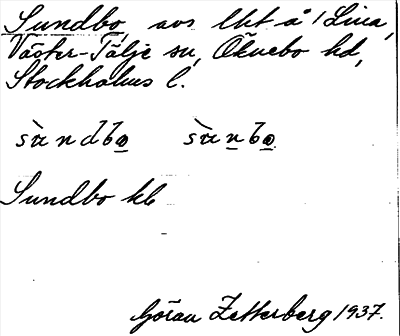 Sundbo, avs lht å 1 Lina,
Väster-Tälje sn, Öknebo hd,
Stockholms l.
sùndbo sùnbo
Sundbo kb
Göran Zetterberg 1937.